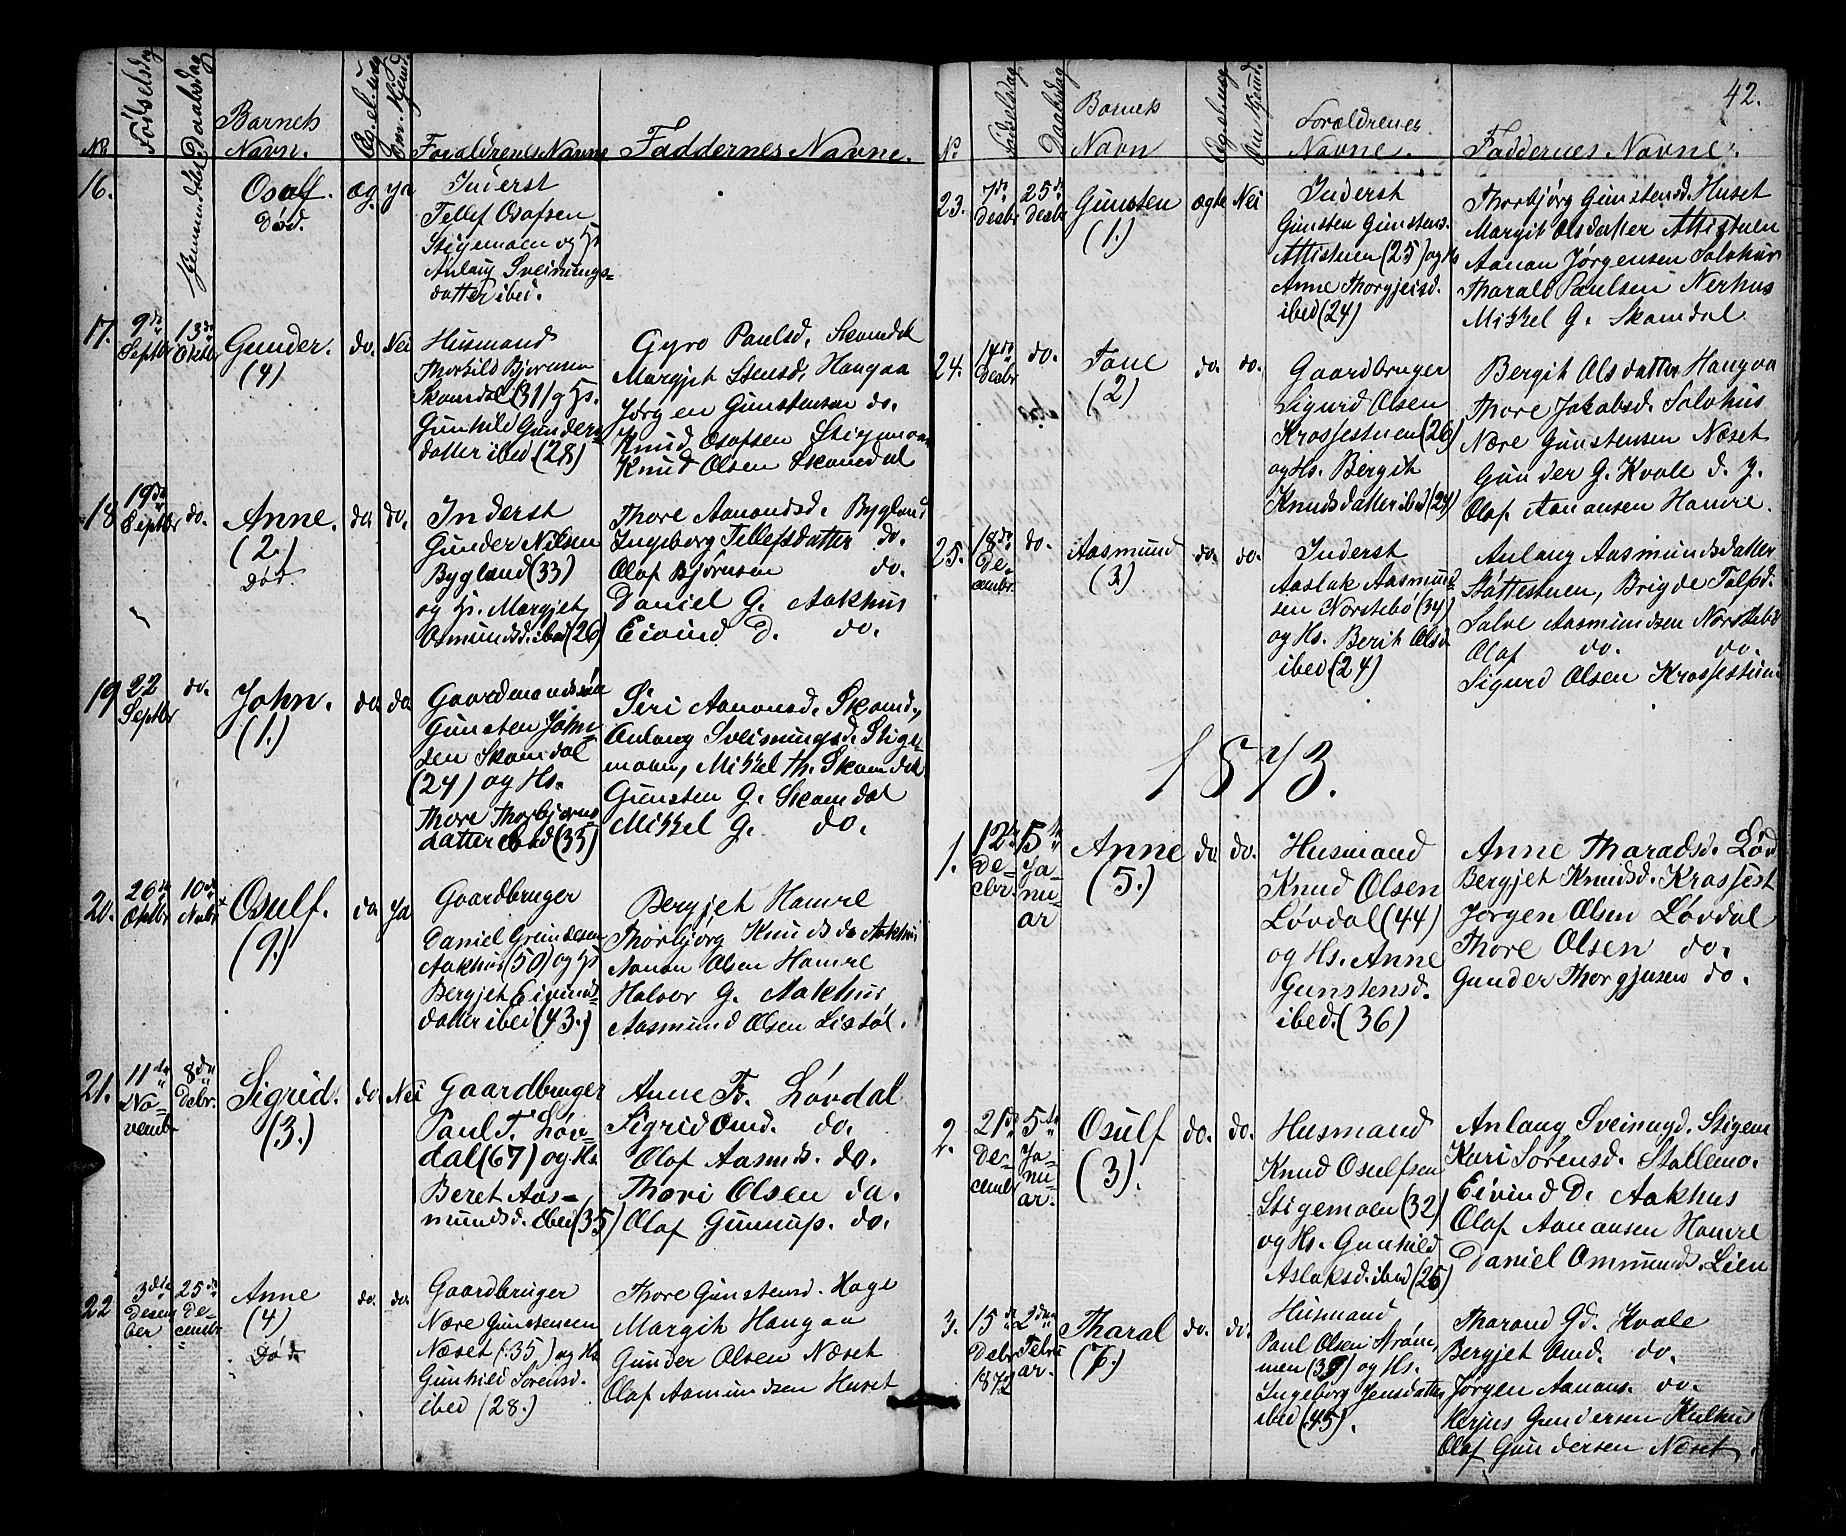 No
Fødselsdag
Daabsdag
Barnets
Navn.
Æg. el. uæg
Forældrenes Navne
Faddernes Navne.
16.
Osulf.
Død.
æg.
ja
Inderst
Tellef Osafsen
Stigemoen og Hs
Anlaug Sveinungs-
datter ibid.
17.
9de
Septbr
13de
Oktbr
Gunder.
(4)
do.
Nei
Husmand
Thorkild Bjørnsen
Skomdal (31) og Hs.
Gunhild Gunders-
datter ibed (28)
Gyro Paulsd. Skomdal
Margjet Stensd. Haugaa
Jørgen Gunstensen do.
Knud Osafsen Stigemoen
Knud Olsen Skomdal
18
19de
Septbr
do.
Anne.
(2.)
Død
do.
do.
Inderst
Gunder Nilsen
Bygland (33)
og Hs. Margjet
Osmundsd. ibed (26)
Thore Aanondsd. Bygland
Ingeborg Tellefsdatter do.
Olaf Bjørnsen do.
Daniel G. Aakhus
Eivind D. do.
19
22
Septbr
do.
John.
(1.)
do.
do
Gaardmandssøn
Gunsten John-
sen Skomdal
(24) og Hs.
Thore Thorbjørns-
datter ibed (35)
Siri Aanonsd. Skomd.
Anlaug Sveinungsd. Stige-
moen, Mikkel Th. Skomdal
Gunsten G. Skomdal
Mikkel G. do.
20.
26de
Oktbr
10de
Novbr
Osulf.
(9.)
do
Ja
Gaardbruger
Daniel Grundesen
Aakhus (50) og Hs
Bergjet Eivinds-
datter ibed (43.)
Bergjet Hamre
Thorbjørg Knudsd. Aakhus
Aanon Olsen Hamre
Halvor G. Aakhus
Aasmund Olsen Listøl.
21.
11de
No-
vembr
8de
Debr.
Sigrid.
(3.)
do
Nei
Gaardbruger
Paul T. Løv-
dal (67) og Hs
Beret Aas-
mundsd. ibed (35)
Anne Th. Løvdal
Sigrid Omd. do.
Olaf Aasmds. do.
Thori Olsen do.
Olaf Gunsups. do.
22
3die
Desem-
ber
25de
De-
cembr
Anne
(4)
Død
do.
do.
Gaardbruger
Nære Gunstensen
Næset (35) og Hs
Gunhild Sørensd.
ibed (28.)
Thore Gunstensd. Hage
Margit Haugaa
Gunder Olsen Næset
Olaf Aamundsen Huset
42.
No
Fødselsdag
Daabsdag
Barnets
Navn
Forældrenes
Navne.
Faddernes Navne.
23.
7de
Desbr
25de
Desbr
Gunsten
(1.)
ægte
Nei
Inderst
Gunsten Gunstens.
Attistuen (25) og Hs
Anne Thorgjeisd.
ibed (24)
Thorbjørg Gunstensd. Huset
Margit Olsdatter Attistuen
Aanon Jørgensen Solohus
Tharald Paulsen Nerhus
Mikkel G. Skomdal
24.
14de
Desbr
do.
Tone
(2)
do.
do.
Gaardbruger
Sigurd Olsen
Krossestuen (26)
og Hs. Bergit
Knudsdatter ibed (24)
Bergit Olsdatter Haugaa
Thore Jakobsd. Solohus
Nære Gunstensen Næset
Gunder G. Kvale d. y.
Olaf Aanonsen Hamre.
25.
18de
De-
cembr.
do.
Aasmund
(3)
do.
do.
Inderst
Aaslak Aasmund-
sen Norstebø (34)
og Hs. Berit Olsd.
ibed (24)
Anlaug Aasmundsdatter
Støttestuen, Brigde Tolfsd.
Salve Aasmundsen Norstebø
Olaf do. do.
Sigurd Olsen Krossestuen
1873.
1.
12te
De-
cbr.
5te
Ja-
nu-
ar
Anne
(5.)
do.
do.
Husmand
Knud Olsen
Løvdal (44)
og Hs. Anne
Gunstensd.
ibed. (36)
Anne Tharadsd. Løvd
Bergjet Knudsd. Krossest
Jørgen Olsen Løvdal
Thore Olsen do.
Gunder Thorgjusen do.
2.
21de
De-
cembr
5te
Ja-
nu-
ar.
Osulf
(3).
do.
do.
Husmand
Knud Osulfsen
Stigemoen (32)
og Hs. Gunhild
Aslaksd. ibed (26)
Anlaug Sveinugd. Stigem
Kari Sørensd. Stallemo.
Eivind D. Aakhus
Olaf Aanonsen Hamre
Daniel Ommunds. Lien
3.
15de
Debr
1872
2den
Febru
ar.
Tharal
do.
do.
Husmand
Paul Olsen Strøm-
men (39) og Hs.
Ingeborg Jensdatter
ibed (45).
Tharond Gd. Kvale
Bergjet Omd. do.
Jørgen Aanons. do.
Herjus Gundersen Kulhus
Olaf Gundersen Næset.